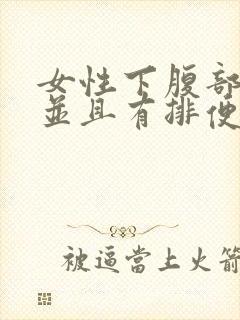 女性下腹部
並且有排便
被逼當上火箭